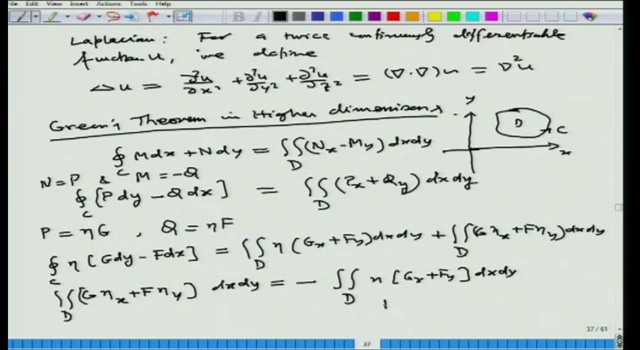 File Edit View Insert Actions Tools Help
Laplacian: For a twice continuously differentiable
function u, we define
Δu = ∂²u/∂x² + ∂²u/∂y² + ∂²u/∂z² = (∇·∇)u = ∇²u
Green's Theorem in Higher dimensions
∮_C Mdx + Ndy = ∬_D (N_x - M_y) dxdy
y D C x
N = P & M = -Q
∮_C [Pdy - Qdx] = ∬_D (P_x + Q_y) dxdy
P = ηG , Q = ηF
∮_C η [Gdy - Fdx] = ∬_D η (G_x + F_y) dxdy + ∬_D (Gη_x + Fη_y) dxdy
∬_D [Gη_x + Fη_y] dxdy = - ∬_D η [G_x + F_y] dxdy
37 / 61
37